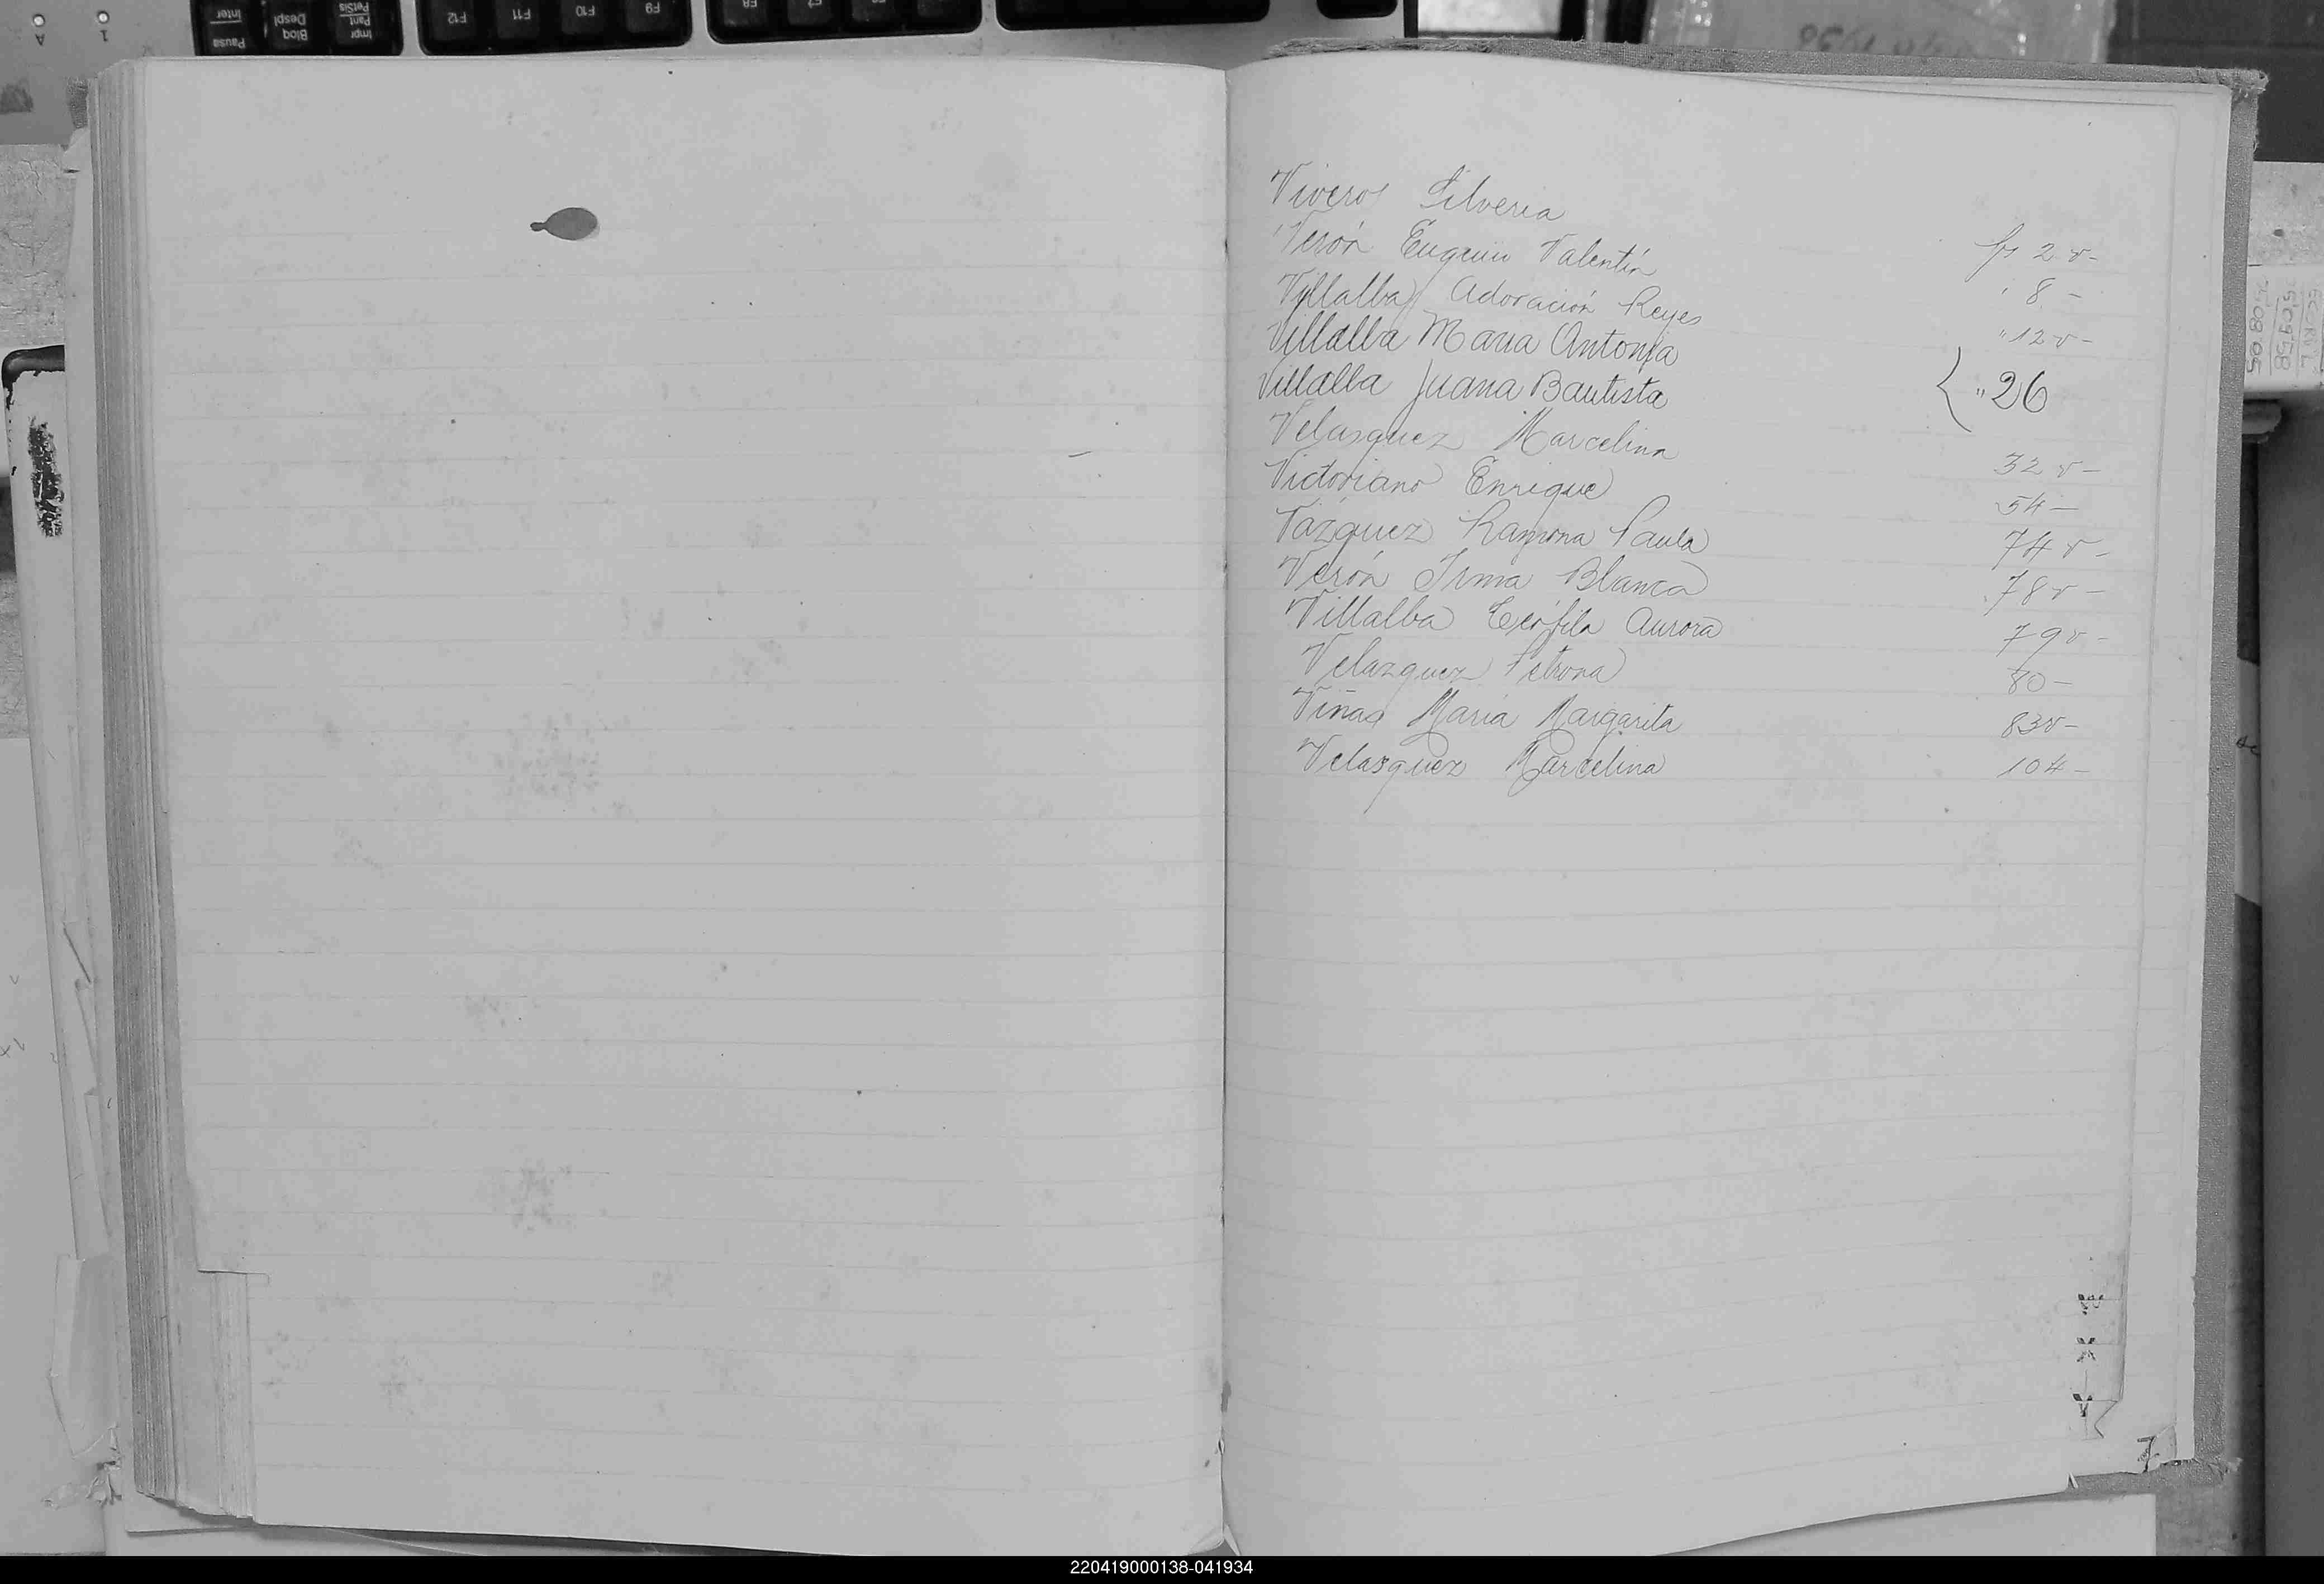 Viveros Silveria fs 2 v-
Verón Eugenio Valentín " 8 -
Villalba Adoración Reyes " 12 v-
Villalba Maria Antonia
Villalba Juana Bautista { " 26
Velasquez Marcelina 32 v-
Victoriano Enrique 54 -
Vázquez Ramona Paula 74 v-
Verón Irma Blanca 78 v-
Villalba Teófila Aurora 79 v-
Velazquez Petrona 80 -
Viñas María Margarita 83 v-
Velasquez Marcelina 104 -
X
Y
Z
Pausa
Inter
Bloq
Despl
Impr
Pant
PetSis
F12
F11
F10
F9
F8
220419000138-041934